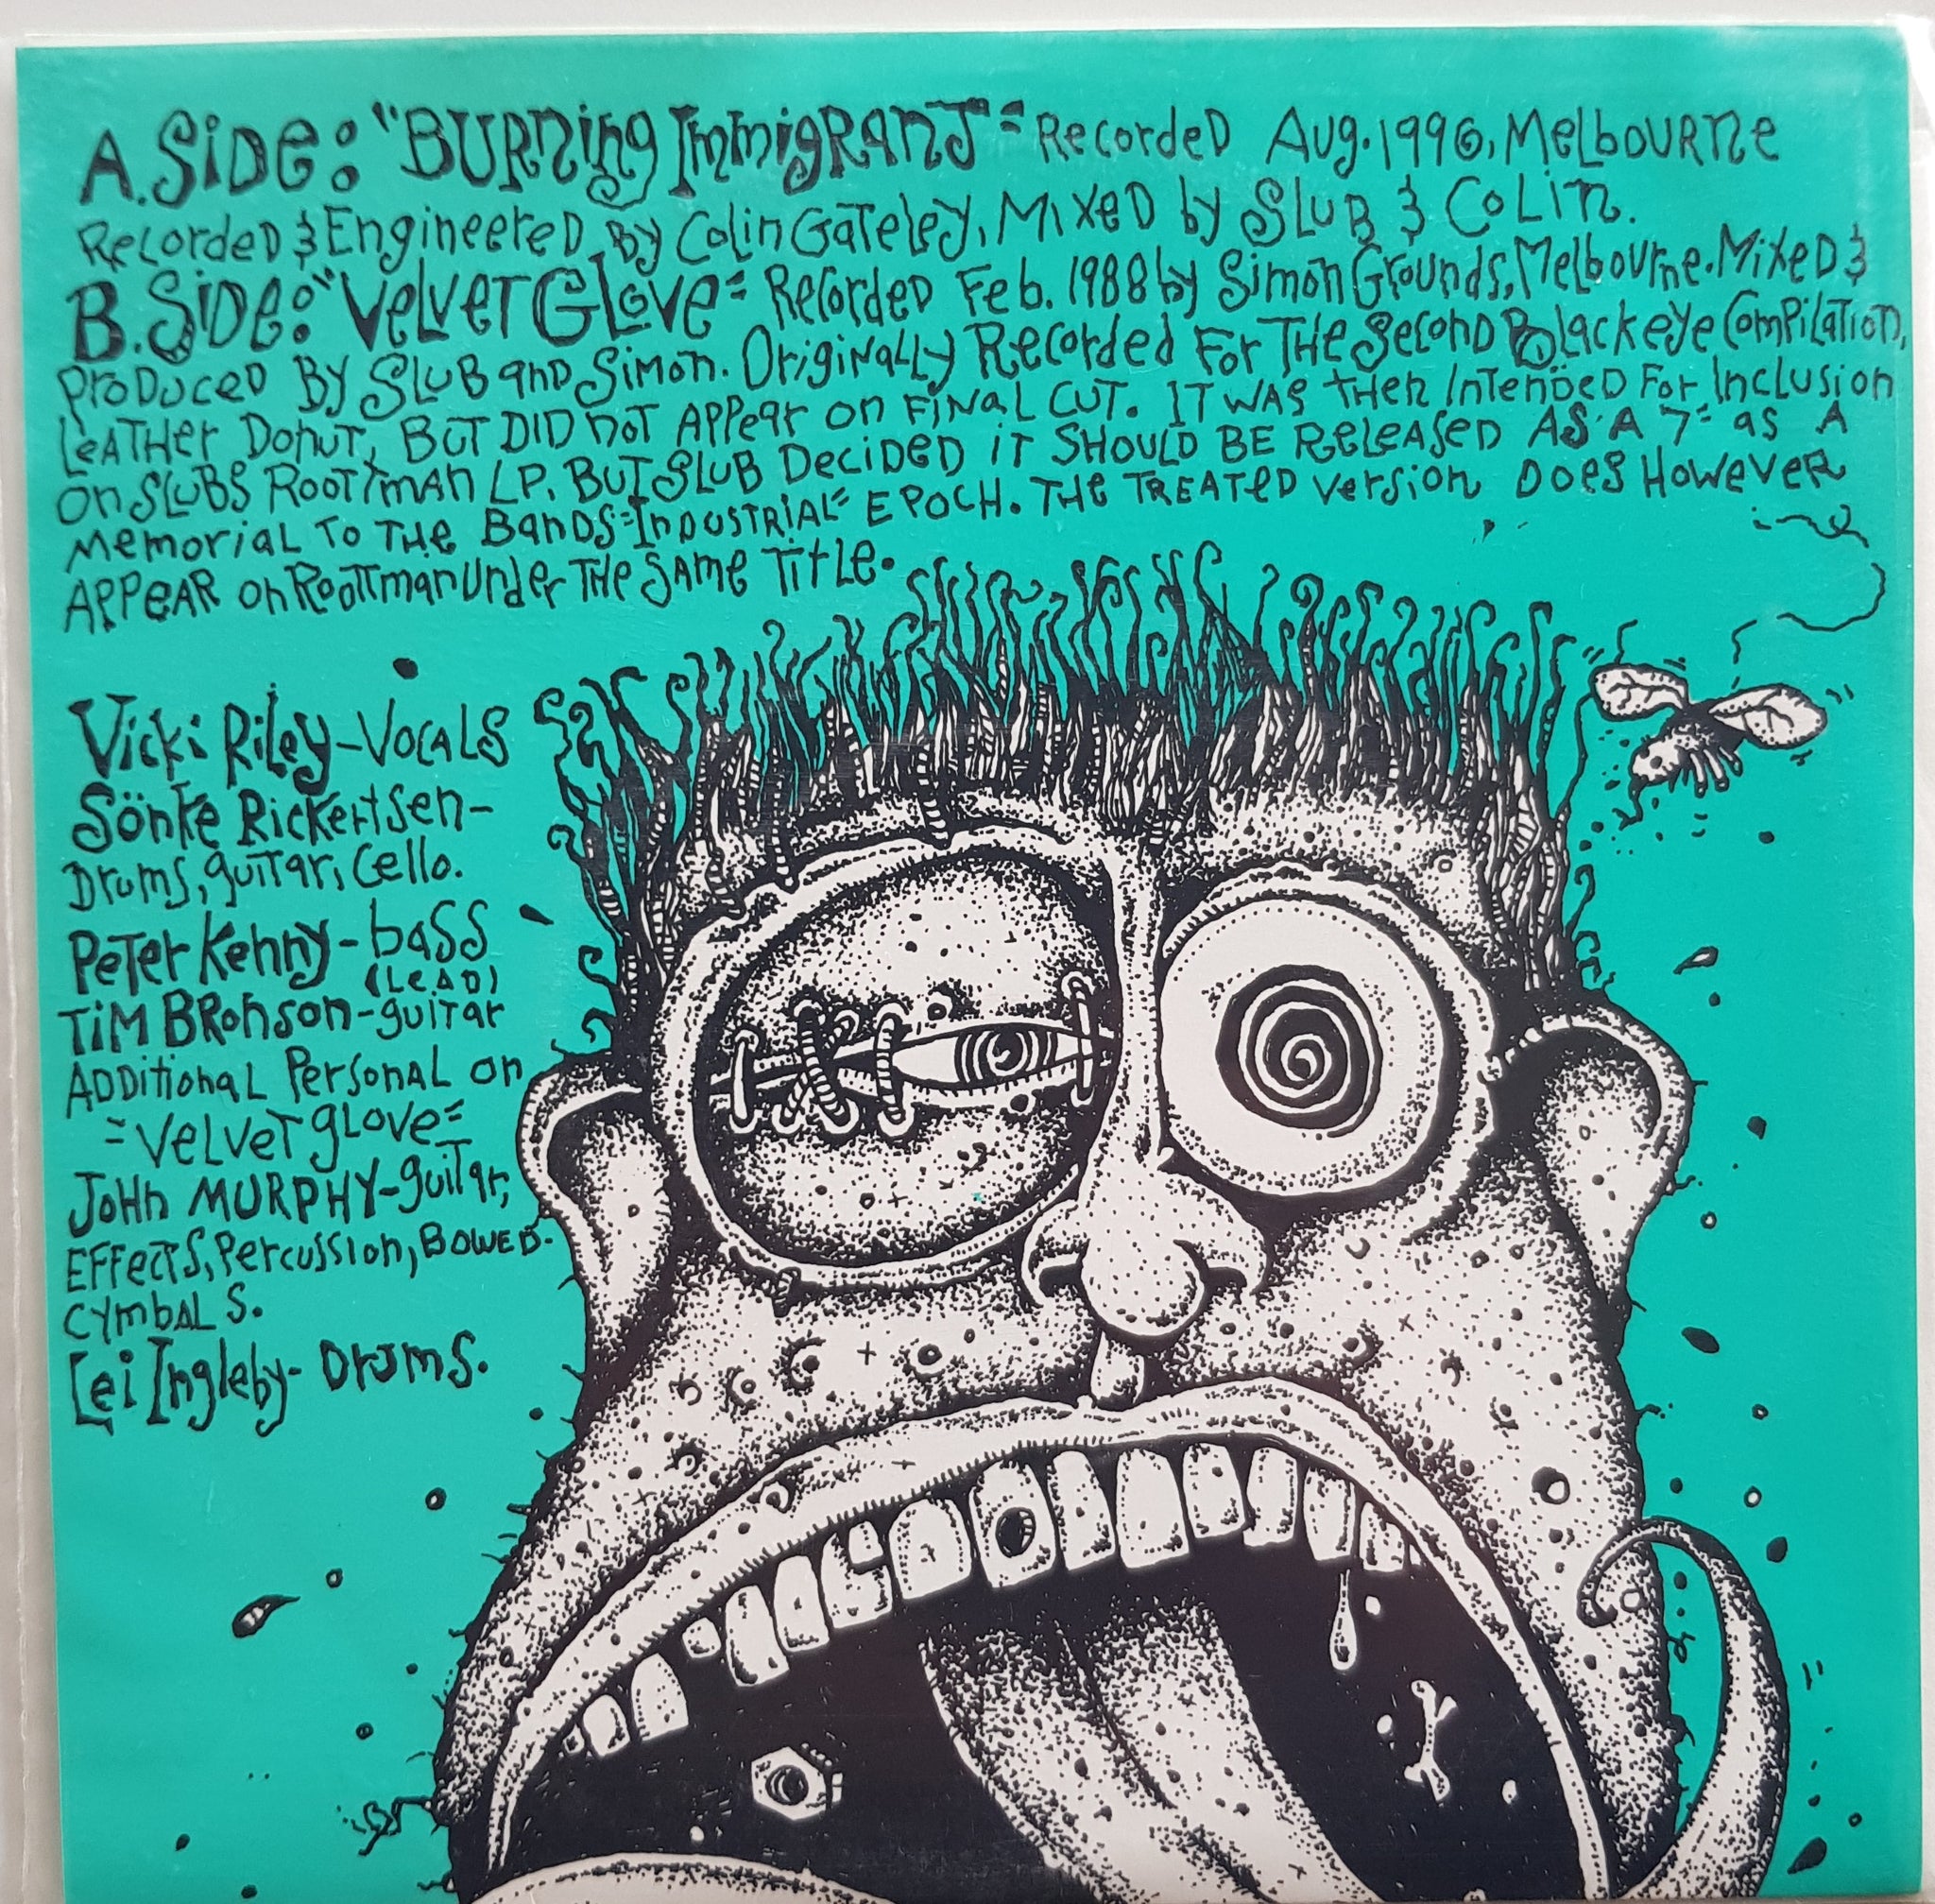 A. Side: "Burning Immigrant" Recorded Aug. 1996, Melbourne
Recorded & Engineered by Colin Gateley, Mixed by Slub & Colin.
B. Side: "Velvet Glove" Recorded Feb. 1988 by Simon Grounds, Melbourne. Mixed &
Produced by Slub and Simon. Originally Recorded For The Second Black eye Compilation,
Leather Donut, But did not appear on final cut. It was then intended for inclusion
on Slubs Roottman LP. But Slub Decided it should be released as a 7" as a
Memorial to the Bands "Industrial" Epoch. The treated version does however
appear on Roottman under the same title.
Vicki Riley - Vocals
Sönke Rickertsen -
Drums, guitar, Cello.
Peter Kenny - bass
(Lead)
Tim Bronson - guitar
Additional Personal on
"Velvet glove"
John Murphy - guitar,
Effects, Percussion, Bowed-
cymbals.
Lei Ingleby - Drums.